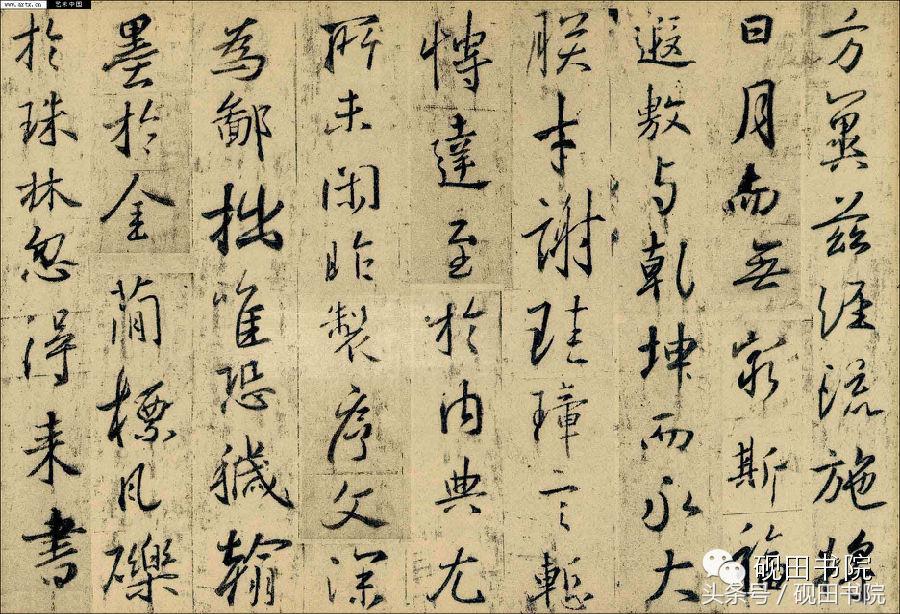 www.artx.cn 艺术中国
方冀茲經流施將
日月而無窮斯福
遐敷與乾坤而永大
朕才謝珪璋言慙
博達至於內典尤
所未閑昨製序文深
為鄙拙唯恐穢翰
墨於金簡標瓦礫
於珠林忽得來書
砚田书院
头条号 / 砚田书院